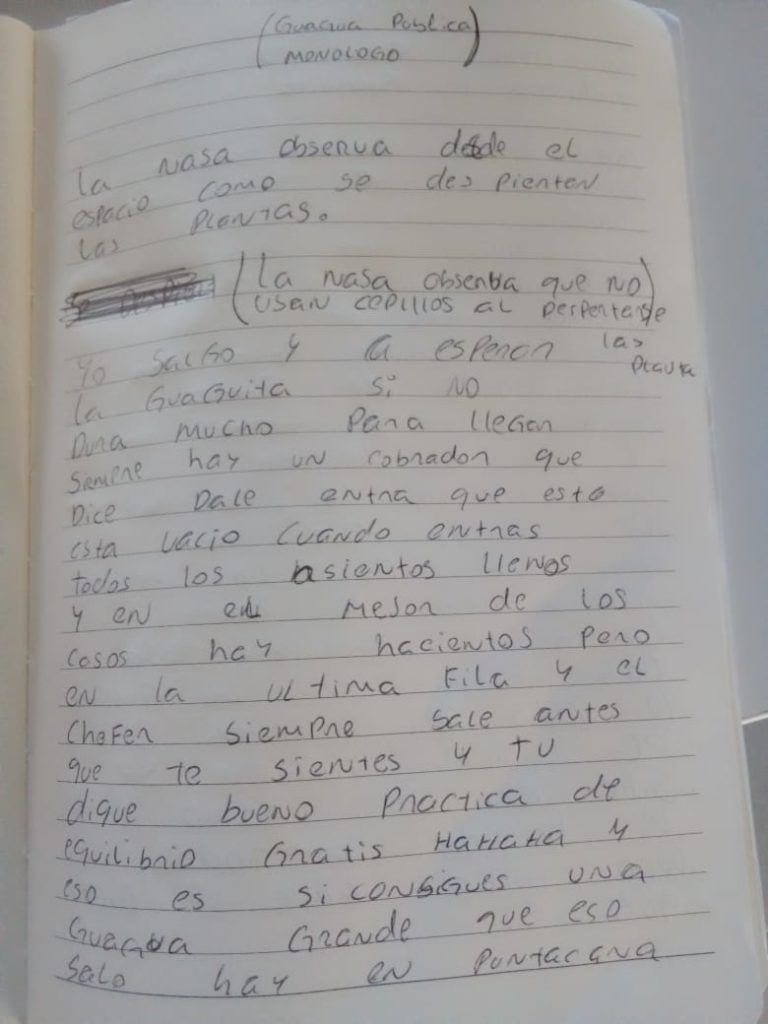 (Guagua Publica)
MONOLOGO
la NASA observa desde el
espacio como se despierten
las plantas.
(la NASA observa que no
usan cepillos al despertarse
las planta
Yo salgo y a esperar
la guaguita si no
Dura mucho para llegar
siempre hay un cobrador que
Dice Dale entra que esto
esta vacio cuando entras
todos los asientos llenos
y en el mejor de los
cosos hay hacientos pero
en la ultima fila y el
chofer siempre sale antes
que te sientes y tu
dique bueno practica de
equilibrio gratis HAHAHA y
eso es si consigues una
guagua grande que eso
salo hay en puntacana